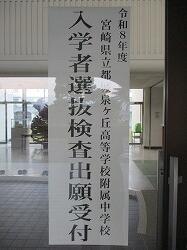 令和８年度
宮崎県立都城泉ヶ丘高等学校附属中学校
入学者選抜検査出願受付